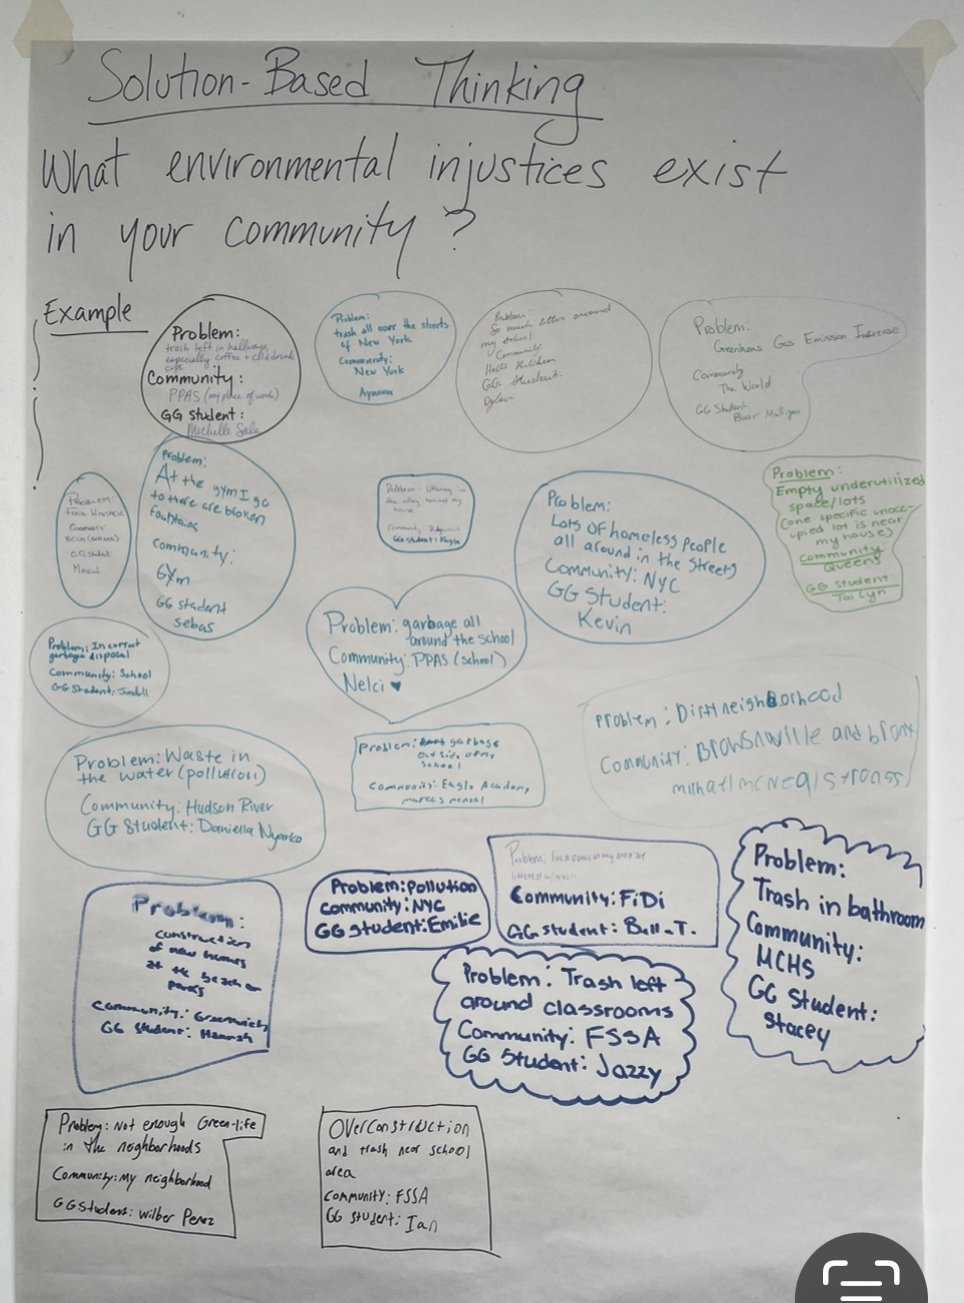 Solution-Based Thinking
What environmental injustices exist
in your community?
Example
Problem:
trash left in hallways
especially coffee + cold drink
cups
Community:
PPAS (my place of work)
GG student:
Michelle
Problem:
trash all over the streets
of New York
Community:
New York
Ayanna
Problem:
So much litter around
my school
Community:
Hells Kitchen
GG Student:
Dylan
Problem:
Greenhouse Gas Emission Increase
Community
The World
GG Student
Problem:
Food
Community
GG Student
Problem:
At the gym I go
to there are broken
fountains
Community:
Gym
GG student
Sebas
Problem: Littering in
the alley behind my
house
Community:
GG student:
Problem:
Lots of homeless people
all around in the streets
Community: NYC
GG Student:
Kevin
Problem:
Empty underutilized
space/lots
(one specific unocc-
upied lot is near
my house)
community
Queens
GG student
Tai Lyn
Problem: Incorrect
garbage disposal
Community: School
GG Student:
Problem: garbage all
around the school
Community: PPAS (school)
Nelci ♥
Problem: Dirty neighborhood
Community: Brownsville and bronx
Problem: Waste in
the water (pollution)
Community: Hudson River
GG Student: Daniella Nyarko
Problem: garbage
outside of my
school
Community: Eagle Academy,
Problem:
construction
of new homes
at the beach or
parks
Community: Greenwich
GG Student: Hannah
Problem: Pollution
Community: NYC
GG Student: Emilie
Problem:
Community: FiDi
GG student: T.
Problem:
Trash in bathroom
Community:
MCHS
GG Student:
Stacey
Problem: Trash left
around classrooms
Community: FSSA
GG Student: Jazzy
Problem: Not enough Green-life
in the neighborhoods
Community: My neighborhood
GG Student: Wilber Perez
Overconstruction
and trash near school
area
Community: FSSA
GG Student: Ian